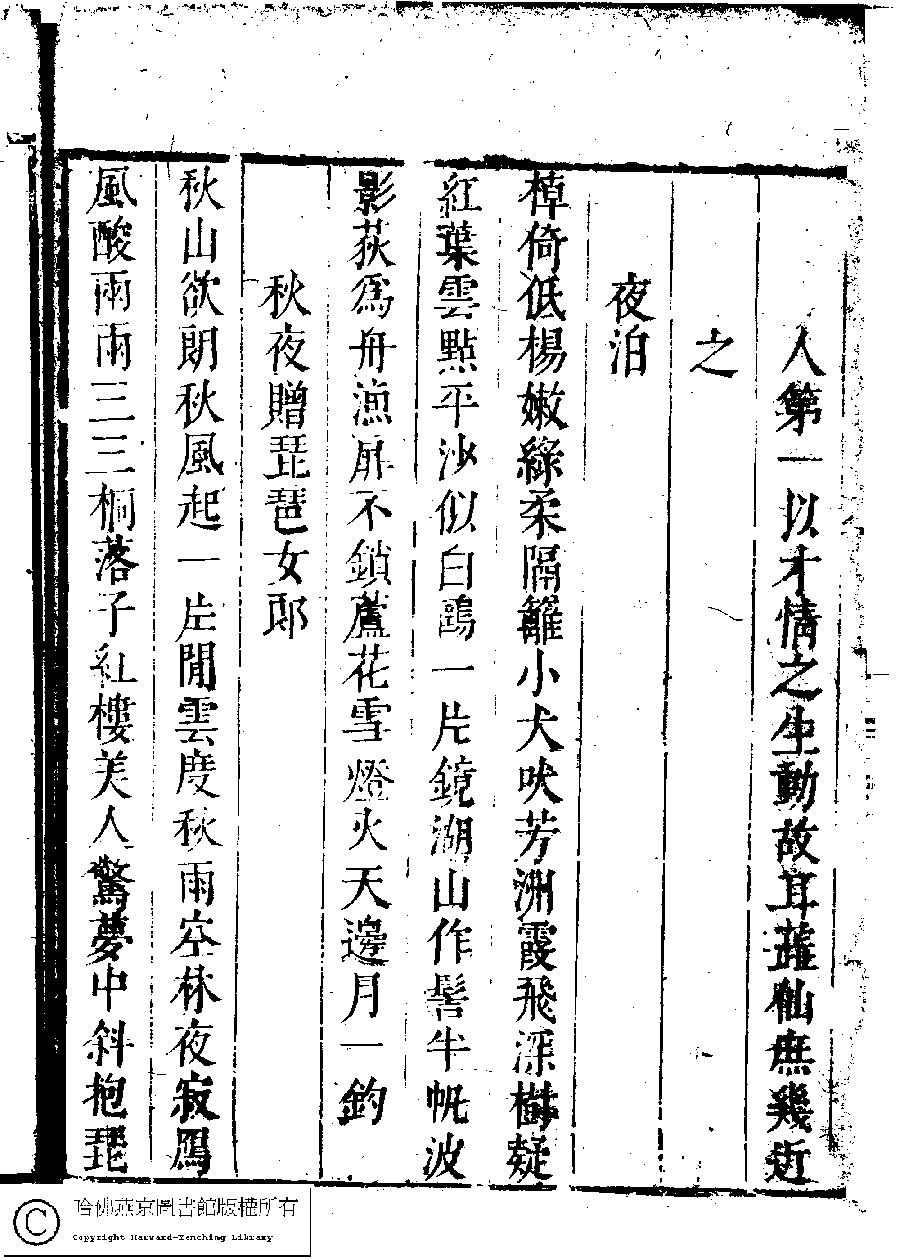 人第一以才情之生動故耳蕋仙庶幾近
之
夜泊
棹倚低楊嫩綠柔隔籬小犬吠芳洲霞飛深樹疑
紅葉雲點平沙似白鷗一片鏡湖山作髻半帆波
影荻為舟漁扉不鎖蘆花雪燈火天邊月一鈎
秋夜贈琵琶女郎
秋山欲朗秋風起一片閒雲度秋雨空林夜寂鴈
風酸雨雨三三桐落子紅樓美人驚夢中斜抱琵
哈佛燕京圖書館版權所有
Copyright Harvard-Yenching Library